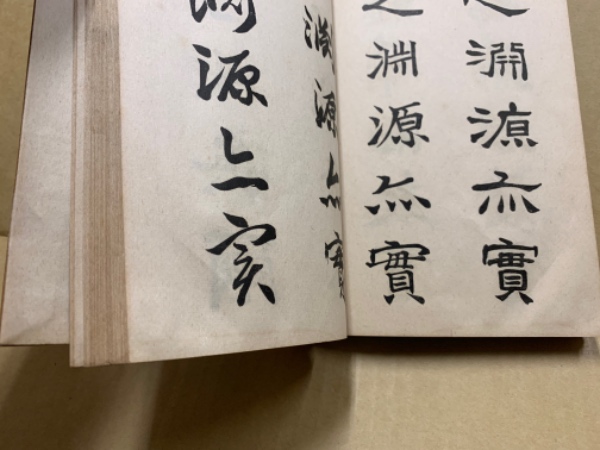 之淵源亦實
之淵源亦實
淵源亦實
淵源亦実